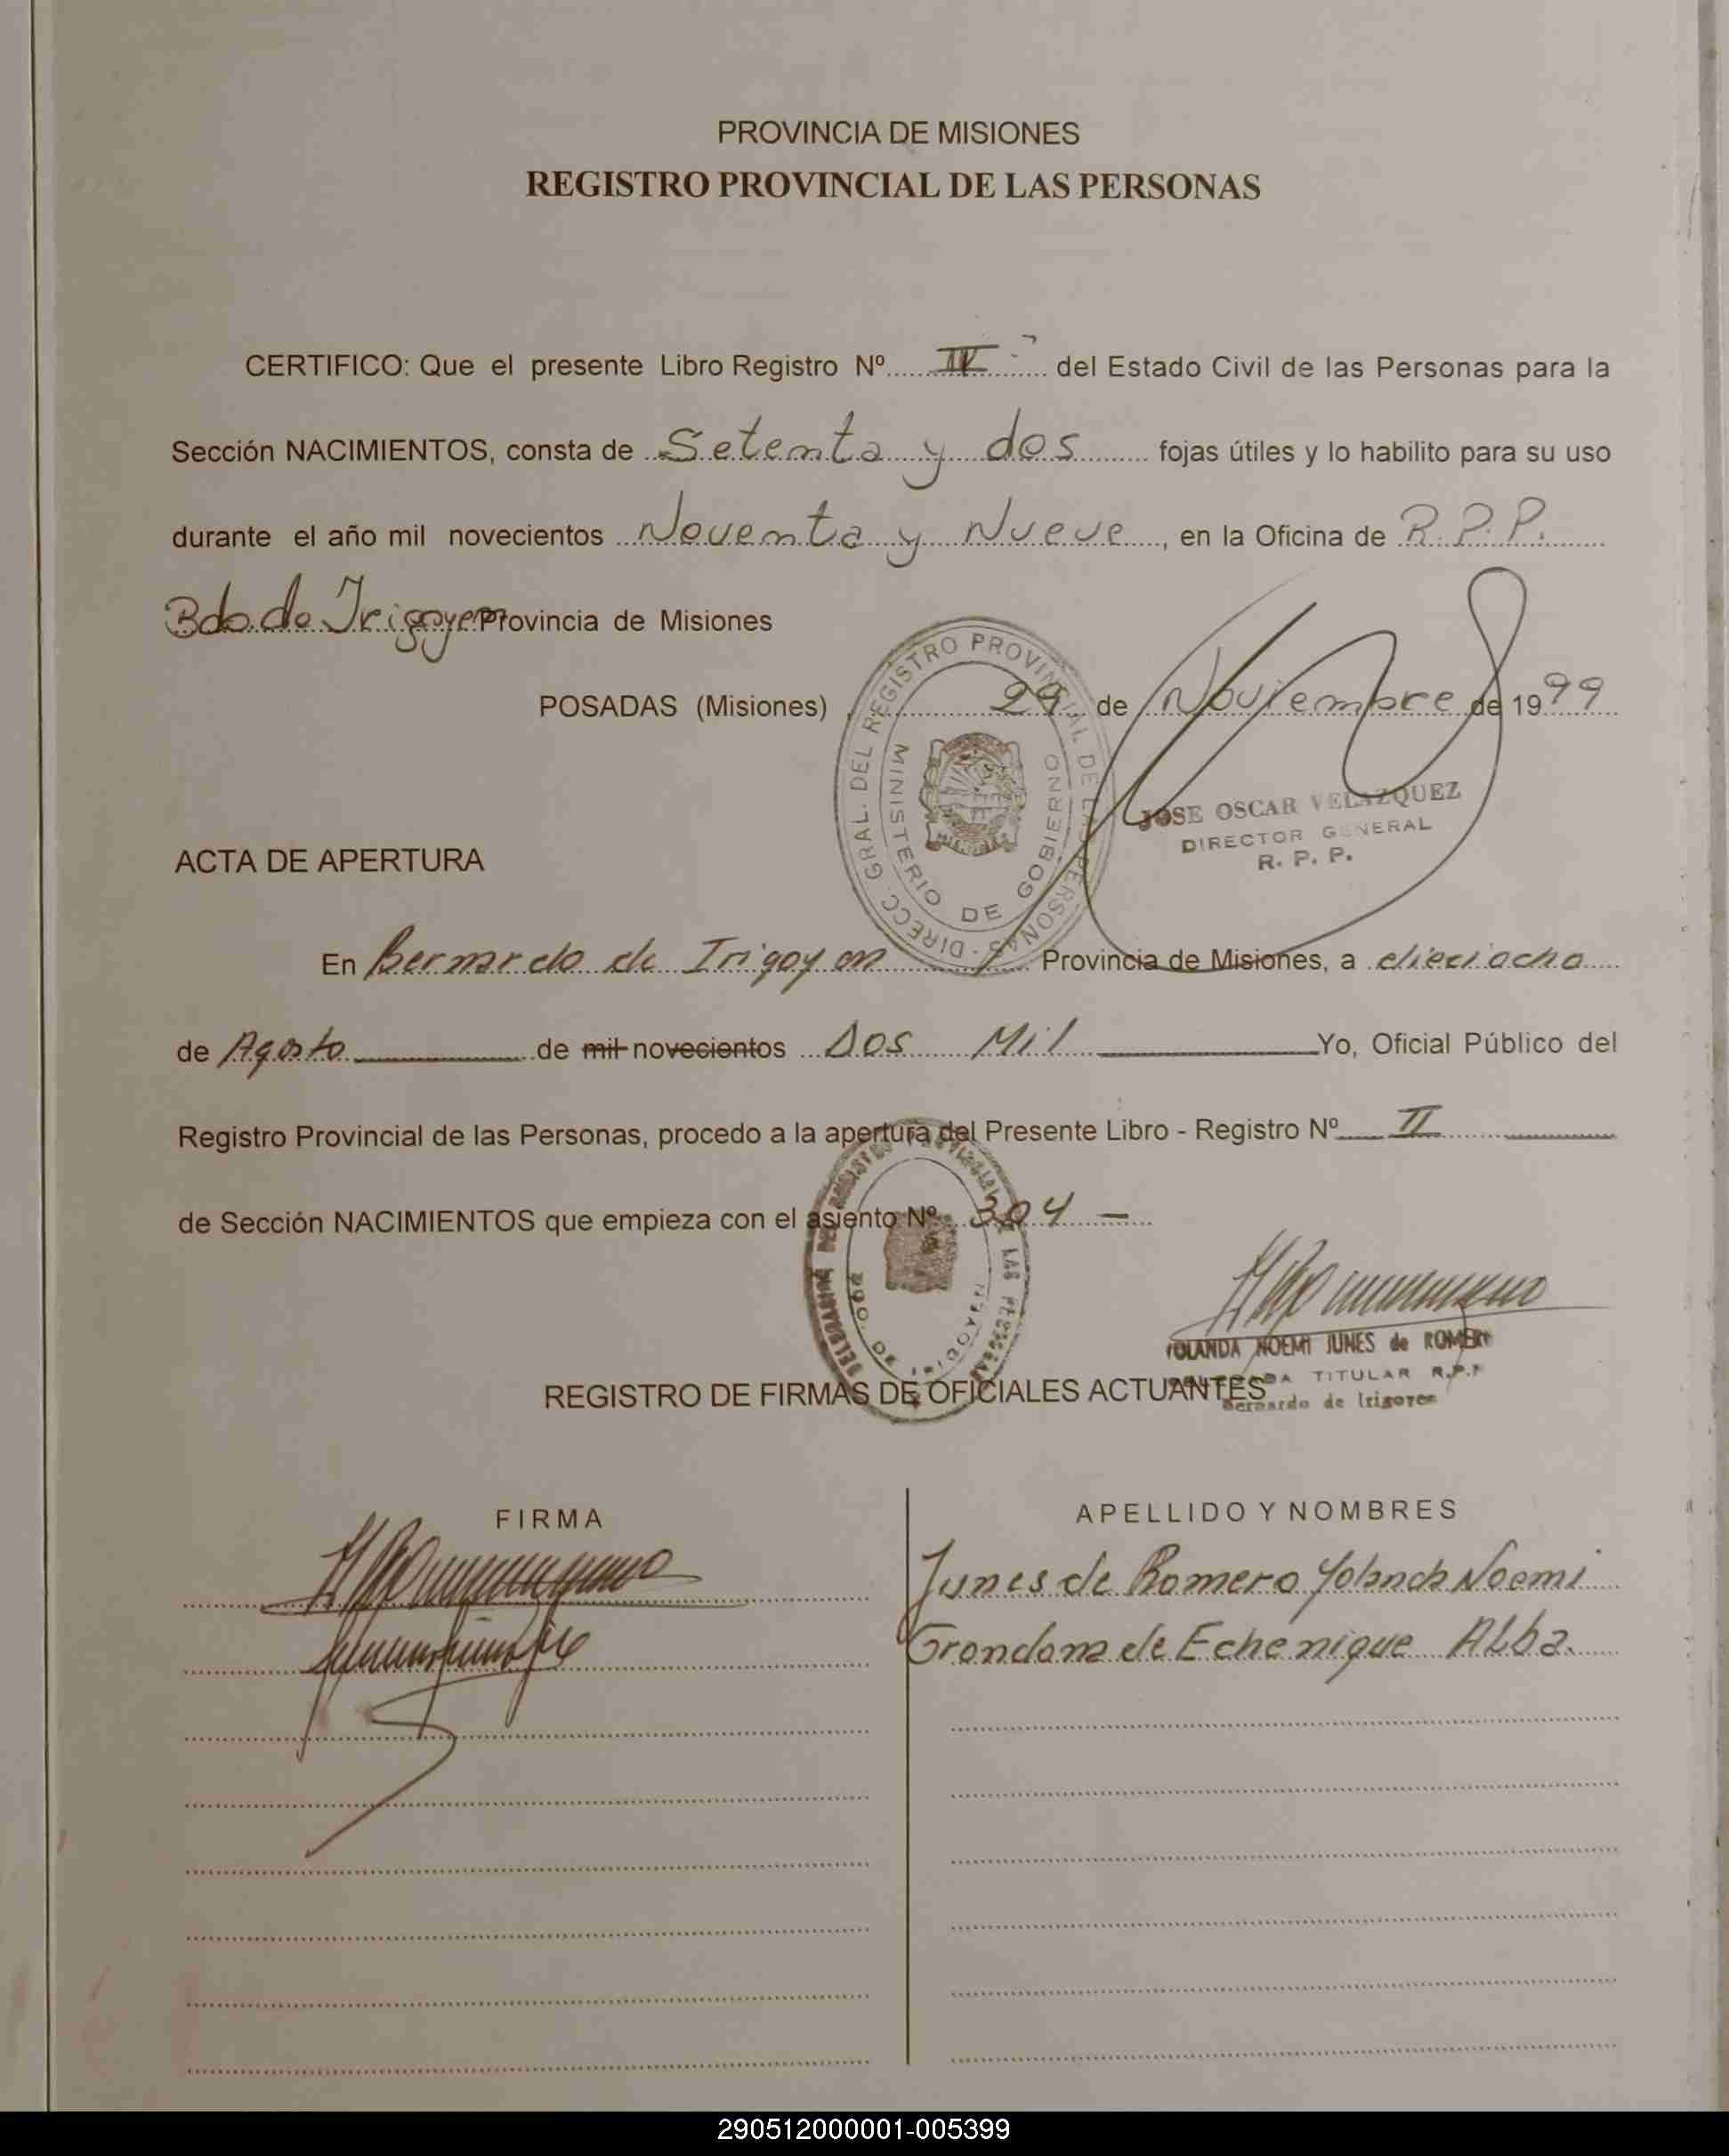 PROVINCIA DE MISIONES
REGISTRO PROVINCIAL DE LAS PERSONAS
CERTIFICO: Que el presente Libro Registro Nº del Estado Civil de las Personas para la
Sección NACIMIENTOS, consta de Setenta y dos fojas útiles y lo habilito para su uso
durante el año mil novecientos Noventa y Nueve, en la Oficina de R.P.P.
Bdo. de Irigoyen Provincia de Misiones
POSADAS (Misiones) 29 de Noviembre de 1999
DIRECC. GRAL. DEL REGISTRO PROVINCIAL DE LAS PERSONAS
MINISTERIO DE GOBIERNO
JOSE OSCAR VELAZQUEZ
DIRECTOR GENERAL
R. P. P.
ACTA DE APERTURA
En Bernardo de Irigoyen Provincia de Misiones, a dieciocho
de Agosto de mil novecientos Dos Mil Yo, Oficial Público del
Registro Provincial de las Personas, procedo a la apertura del Presente Libro - Registro Nº II
de Sección NACIMIENTOS que empieza con el asiento Nº 304 -
BDO. DE IRIGOYEN
YOLANDA NOEMI JUNES de ROMERO
TITULAR R.P.P
Bernardo de Irigoyen
REGISTRO DE FIRMAS DE OFICIALES ACTUANTES
FIRMA APELLIDO Y NOMBRES
Junes de Romero Yolanda Noemi
Grondona de Echenique Alba.
290512000001-005399